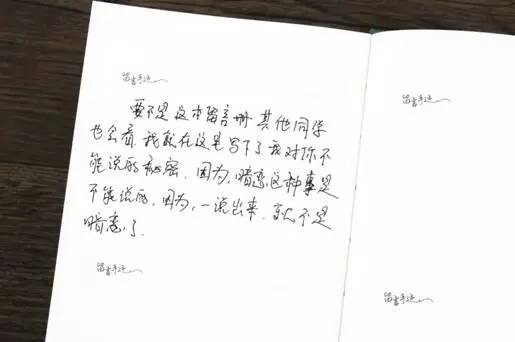 留言手迹
要不是这本留言册其他同学
也会看,我就在这里写下了我对你不
能说的秘密.因为,暗恋这种事是
不能说的,因为,一说出来,就不是
暗恋了.
留言手迹
留言手迹
留言手迹